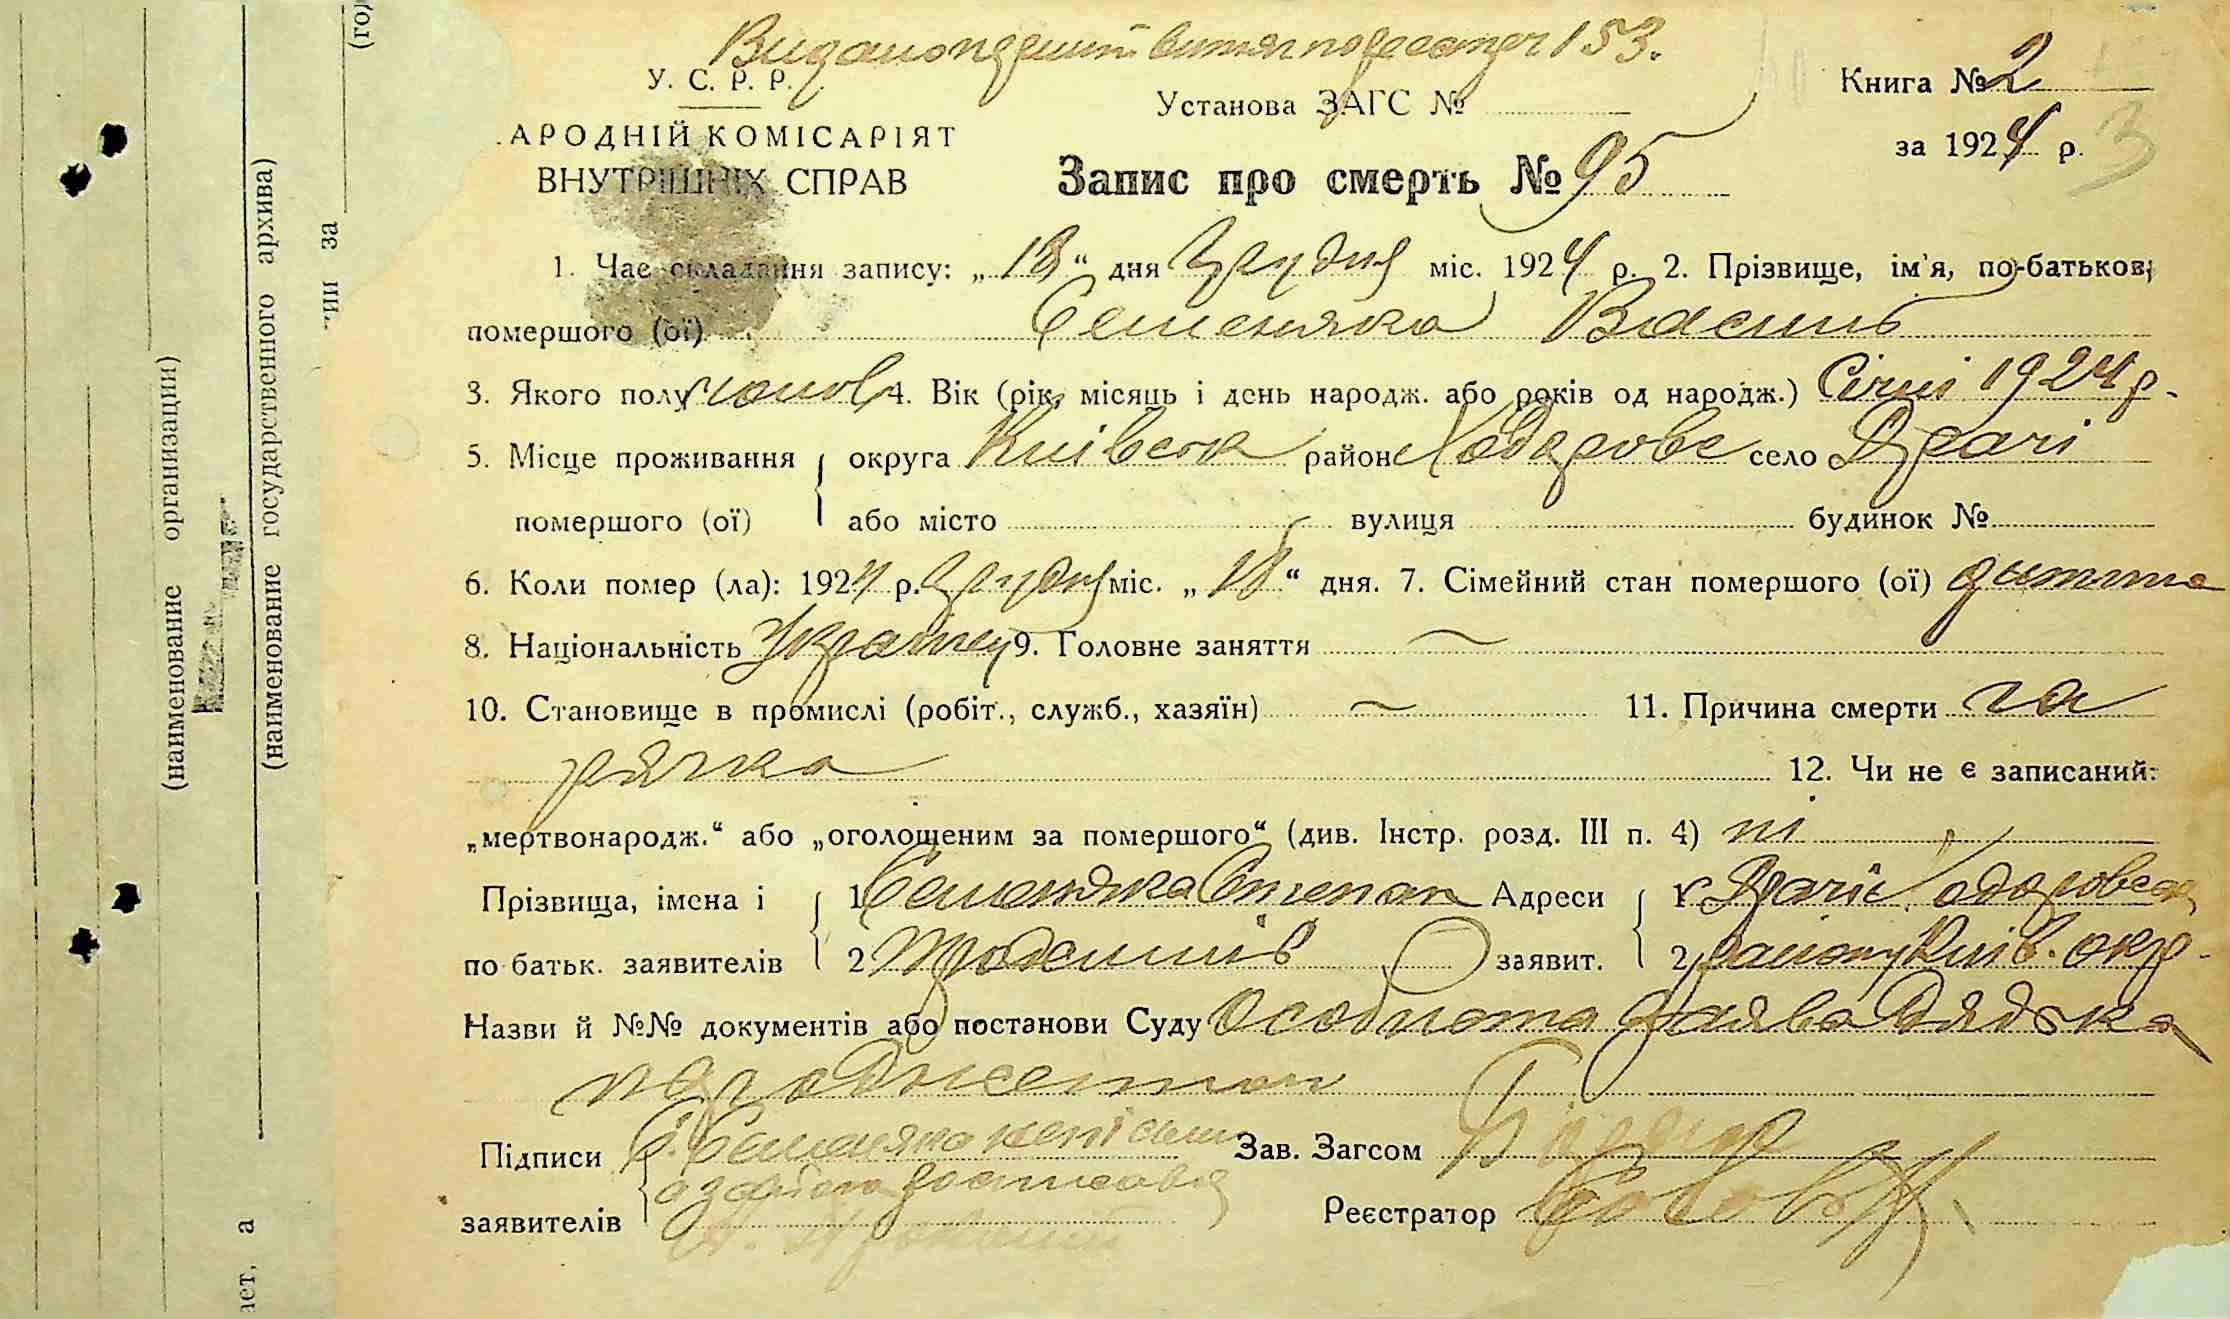 Видано перший витяг по реєстру 153.
У. С. Р. Р.
Книга № 2
Установа ЗАГС №
АРОДНІЙ КОМІСАРІЯТ
за 1924 р. 3
ВНУТРІШНІХ СПРАВ
Запис про смерть № 95
1. Час складання запису: „18“ дня Грудня міс. 1924 р. 2. Прізвище, ім'я, по-батькові
помершого (ої) Семеняка Василь
3. Якого полу чолов 4. Вік (рік, місяць і день народж. або років од народж.) Січні 1924 р.
5. Місце проживання округа Київськ район Ходорове село Драчі
помершого (ої) або місто вулиця будинок №
6. Коли помер (ла): 1924 р. Грудня міс. „ “ дня. 7. Сімейний стан помершого (ої) дитина
8. Національність Українец 9. Головне заняття —
10. Становище в промислі (робіт., служб., хазяїн) — 11. Причина смерти га
рячка 12. Чи не є записаний:
„мертвонародж.“ або „оголошеним за помершого“ (див. Інстр. розд. III п. 4) ні
Прізвища, імена і 1 Семеняка Степан Адреси 1 с Драчі Ходоровськ
по батьк. заявителів 2 заявит. 2 району Київ. окр.
Назви й №№ документів або постанови Суду Особиста заява Дядька
народженого
Підписи С. Семеняка неписьм Зав. Загсом
а за його розписався
заявителів Реєстратор
(наименование организации)
(наименование государственного архива)
за